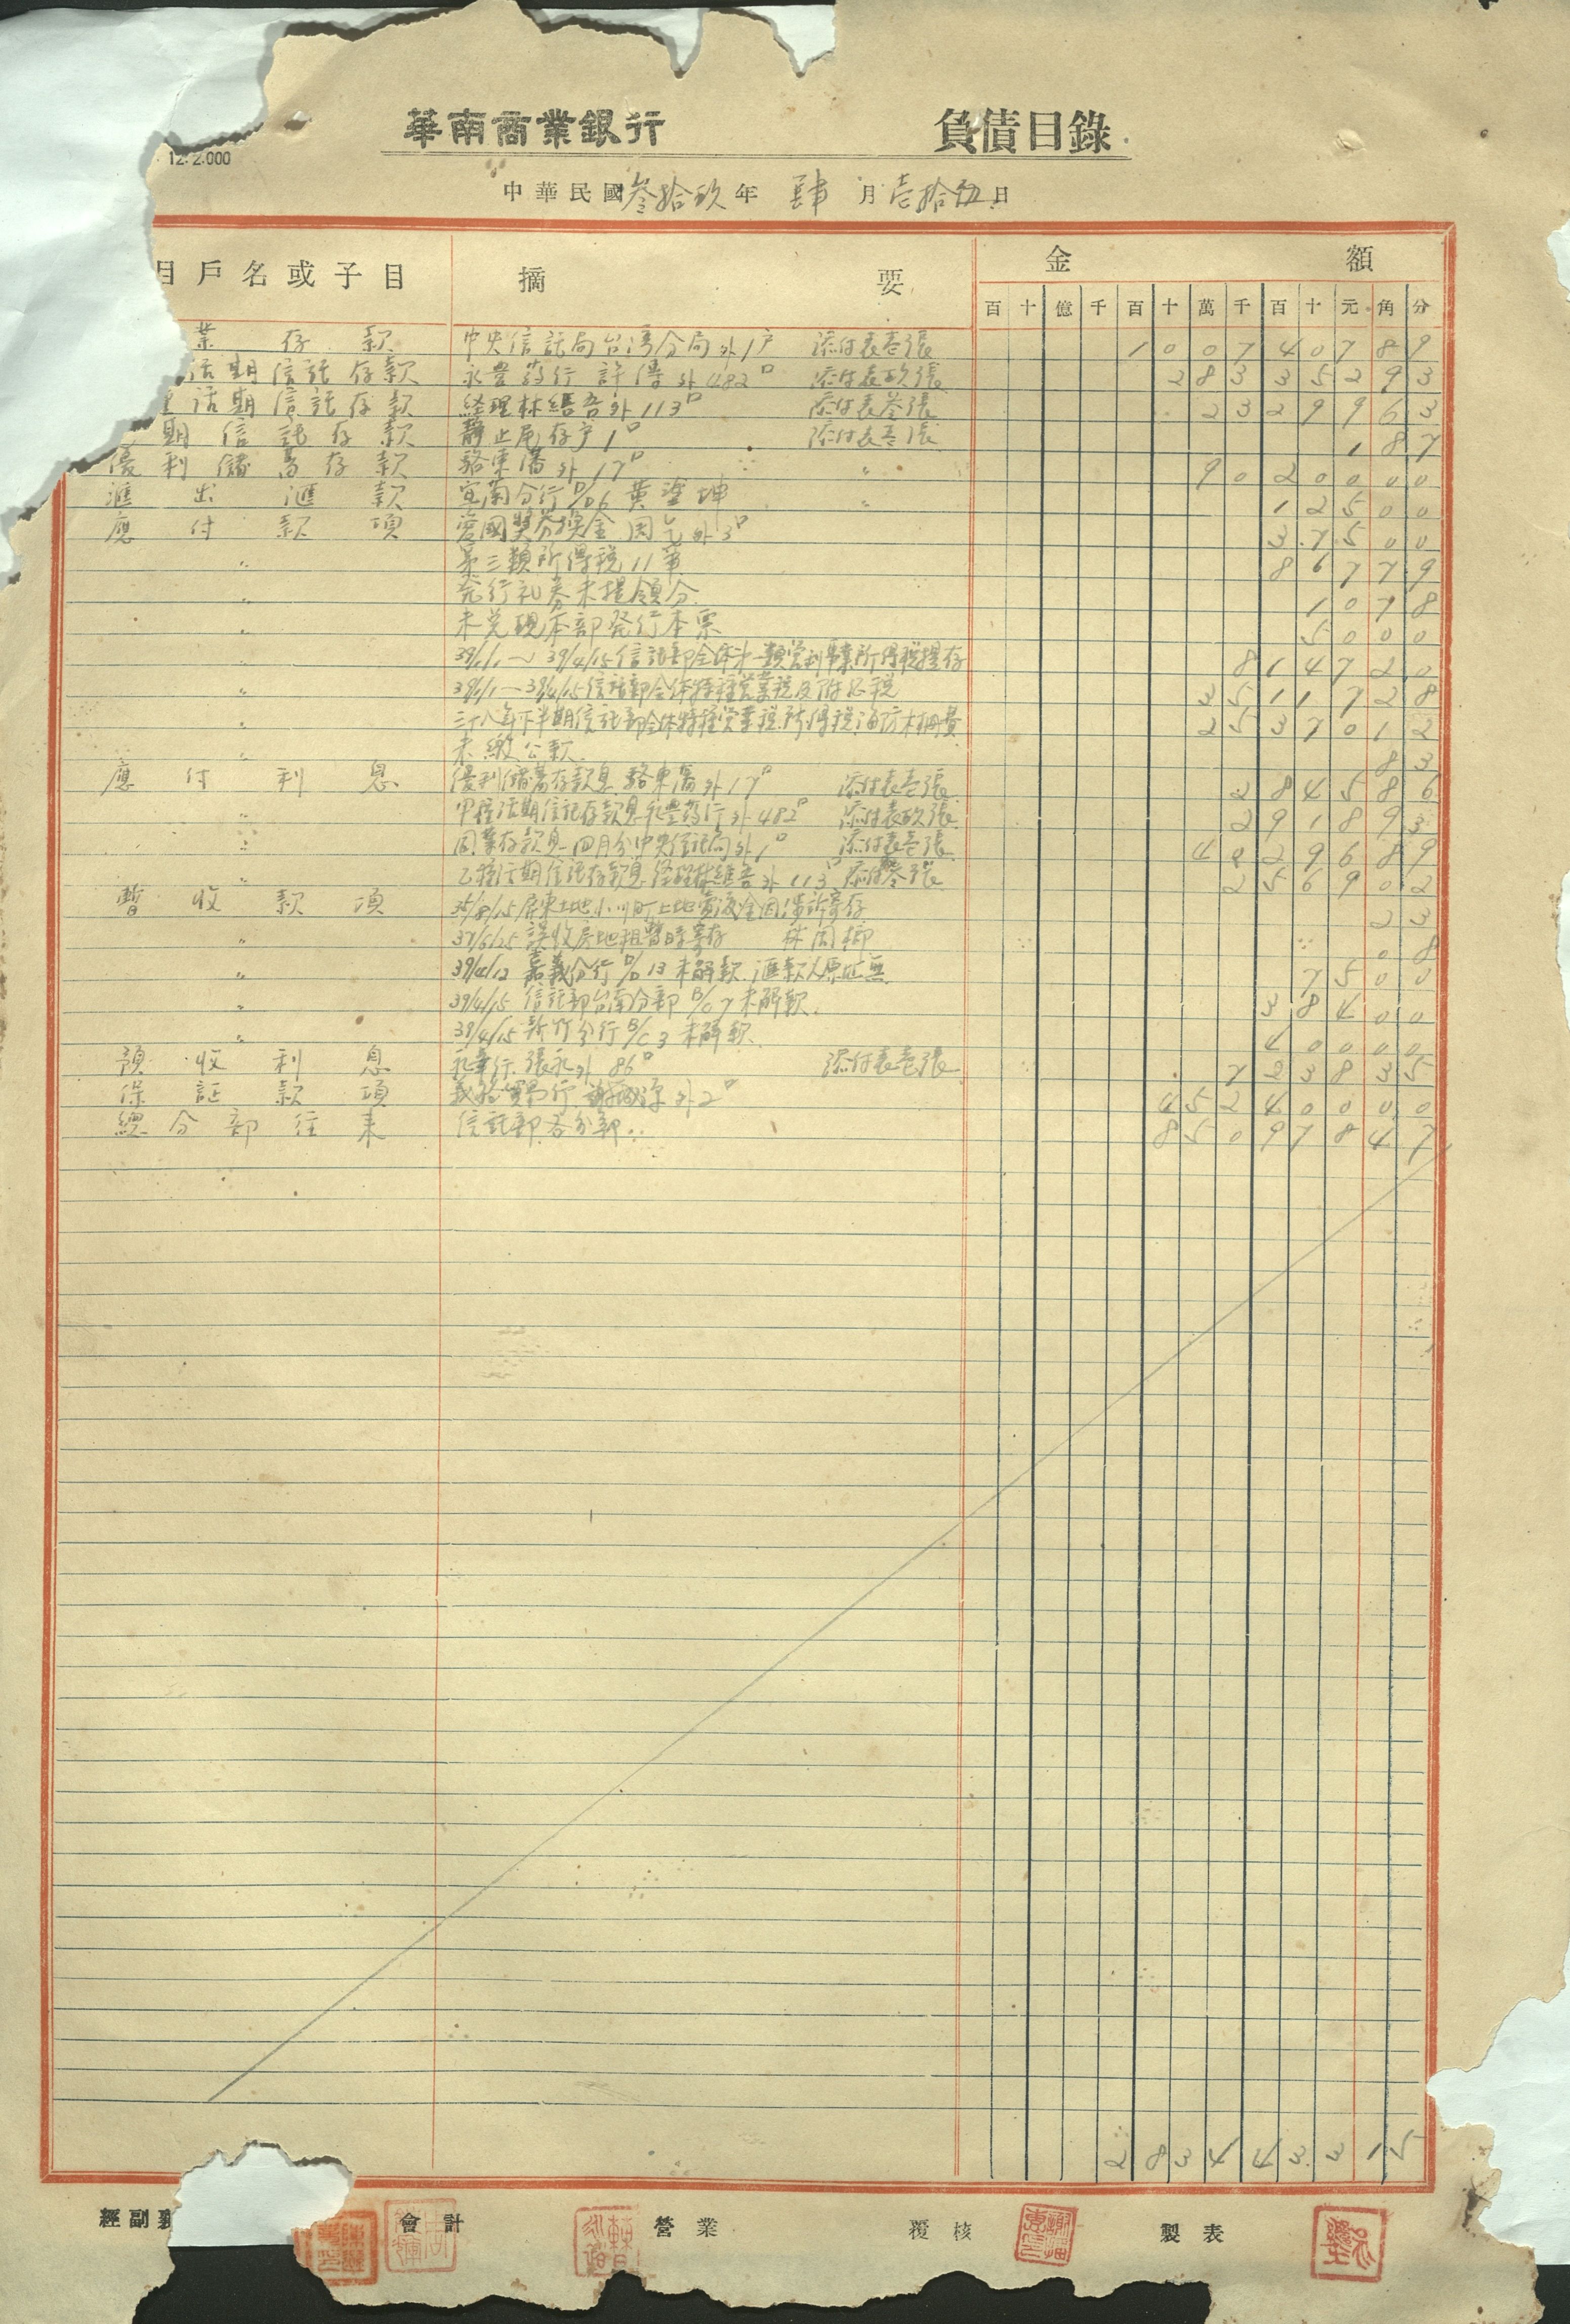 華南商業銀行 負債目錄
12.2.000
中華民國叁拾玖年 肆月壹拾伍日
目戶名或子目 摘要 金額
百十億千百十萬千百十元角分
業存款 中央信託局台湾分局外1户 添付表壱張 1007407 89
活期信託存款 永豊葯行 許傳外482口 添付表玖張 283352 93
活期信託存款 経理林継吾外113口 添付表叁張 23299 63
期信託存款 静止尾存户1口 添付表壱張 1 87
優利儲蓄存款 駱東藩外17口 〃 90200 00
滙出滙款 宜蘭分行D/D6 黄塗坤 〃 125 00
應付款項 愛國奨券換金 外3口 375 00
〃 第三類所得税11筆 867 79
〃 発行礼券未提領分 10 78
〃 未兑現本部発行本票 50 00
〃 39/1/1～39/4/15信託部全体第一類営利事業所得税提存 8147 20
〃 39/1/1～39/4/15信託部全体特種営業税及附加税 35117 28
〃 三十八年下半期信託部全体特種営業税.所得税.海防木柵費 25370 12
〃 未繳公款 83
應付利息 優利儲蓄存款息 駱東藩外17口 添付表壱張 2845 86
〃 甲種活期信託存款息永豊葯行外482口 添付表玖張 2918 93
〃 同業存款息 四月分中央信託局外1口 添付表壱張 40296 89
〃 乙種活期信託存款息 経理林継吾外113口 添付表叁張 2569 02
暫收款項 35/8/15屏東土地小川町土地賣渡金因涉訴寄存 23
〃 37/6/25 誤收房地租暫時寄存 林周柳 08
〃 39/4/12 嘉義分行D/D13 未解款 滙款人原址無 75 00
〃 39/4/15 信託部台南分部B/C7未解款. 384 00
〃 39/4/15 新竹分行B/C3 未解款. 400 00
預收利息 永華行.張永外86口 添付表壱張 7238 35
保証款項 義裕貿易行 外2口 452400 00
總分部往来 信託部各分部 850978 47
2834433 15
經副襄 會計 營業 覆核 製表